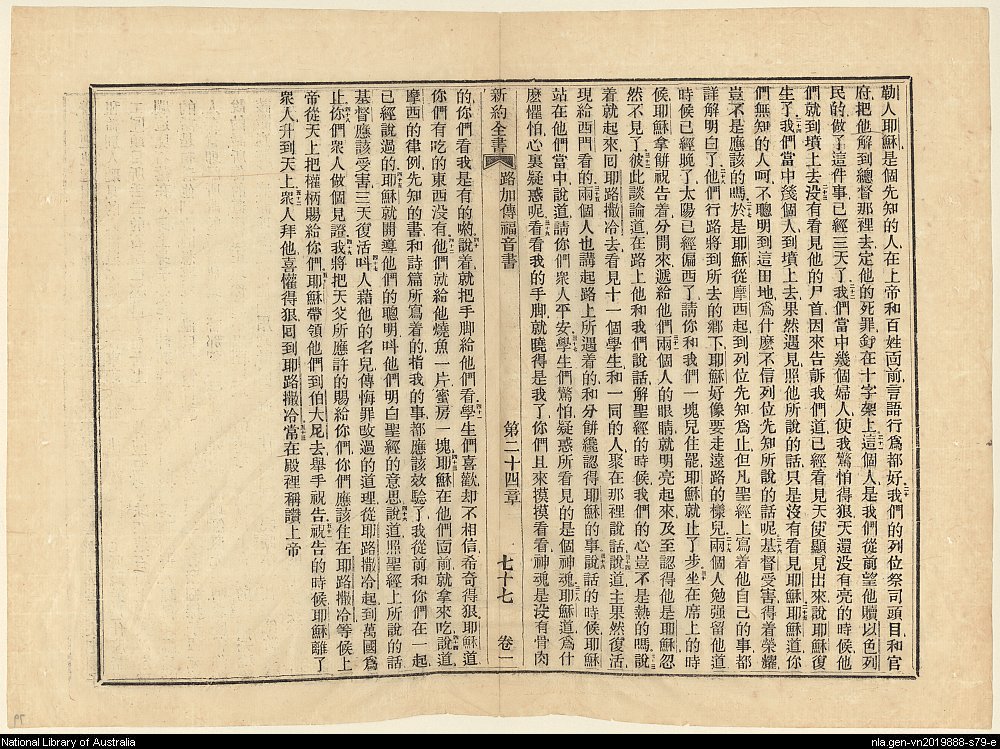 勒人耶穌是個先知的人在上帝和百姓面前言語行爲都好我們的列位祭司頭目和官
府把他解到總督那裡去定他的死罪釘在十字架上這個人是我們從前望他贖以色列
民的做了這件事已經三天了我們當中幾個婦人使我驚怕得狠天還没有亮的時候他
們就到墳上去没有看見他的尸首因來告訴我們道已經看見天使顯見出來說耶穌復
生了我們當中㡬個人到墳上去果然遇見照他所說的話只是沒有看見耶穌耶穌道你
們無知的人呵不聰明到這田地爲什麽不信列位先知所說的話呢基督受害得着榮耀
豈不是應該的嗎於是耶穌從摩西起到列位先知爲止但凡聖經上寫着他自己的事都
詳解明白了他們行路將到所去的鄉下耶穌好像要走遠路的樣兒兩個人勉强留他道
時候已經晚了太陽已經偏西了請你和我們一塊兒住罷耶穌就止了步坐在席上的時
候耶穌拿餅祝告着分開來遞給他們兩個人的眼睛就明亮起來及至認得他是耶穌忽
然不見了彼此談論道在路上他和我們說話解聖經的時候我們的心豈不是熱的嗎說
着就起來回耶路撒冷去看見十一個學生和一同的人聚在那裡說話說道主果然復活
現給西門看的兩個人也講起路上所遇着的和分餅纔認得耶穌的事說話的時候耶穌
站在他們當中說道請你們衆人平安學生們驚怕疑惑所看見的是個神魂耶穌道爲什
麽懼怕心裏疑惑呢看看我的手脚就曉得是我了你們且來摸摸看看神魂是没有骨肉
新約全書 路加傳福音書 第二十四章 七十七 卷一
的你們看我是有的喲說着就把手脚給他們看學生們喜歡却不相信希奇得狠耶穌道
你們有吃的東西没有他們就給他燒魚一片蜜房一塊耶穌在他們面前就拿來吃說道
摩西的律例先知的書和詩篇所寫着的指我的事都應該效驗了我從前和你們在一起
已經說過的耶穌就開導他們的聰明呌他們明白聖經的意思說道照聖經上所說的話
基督應該受害三天復活呌人藉他的名兒傳悔罪改過的道理從耶路撒冷起到萬國爲
止你們衆人做個見證我將把天父所應許的賜給你們你們應該住在耶路撒冷等候上
帝從天上把權柄賜給你們耶穌帶領他們到伯大尼去舉手祝告祝告的時候耶穌離了
衆人升到天上衆人拜他喜懽得狠囘到耶路撒冷當在殿裡稱讚上帝
79
National Library of Australia
nla.gen-vn2019888-s79-e